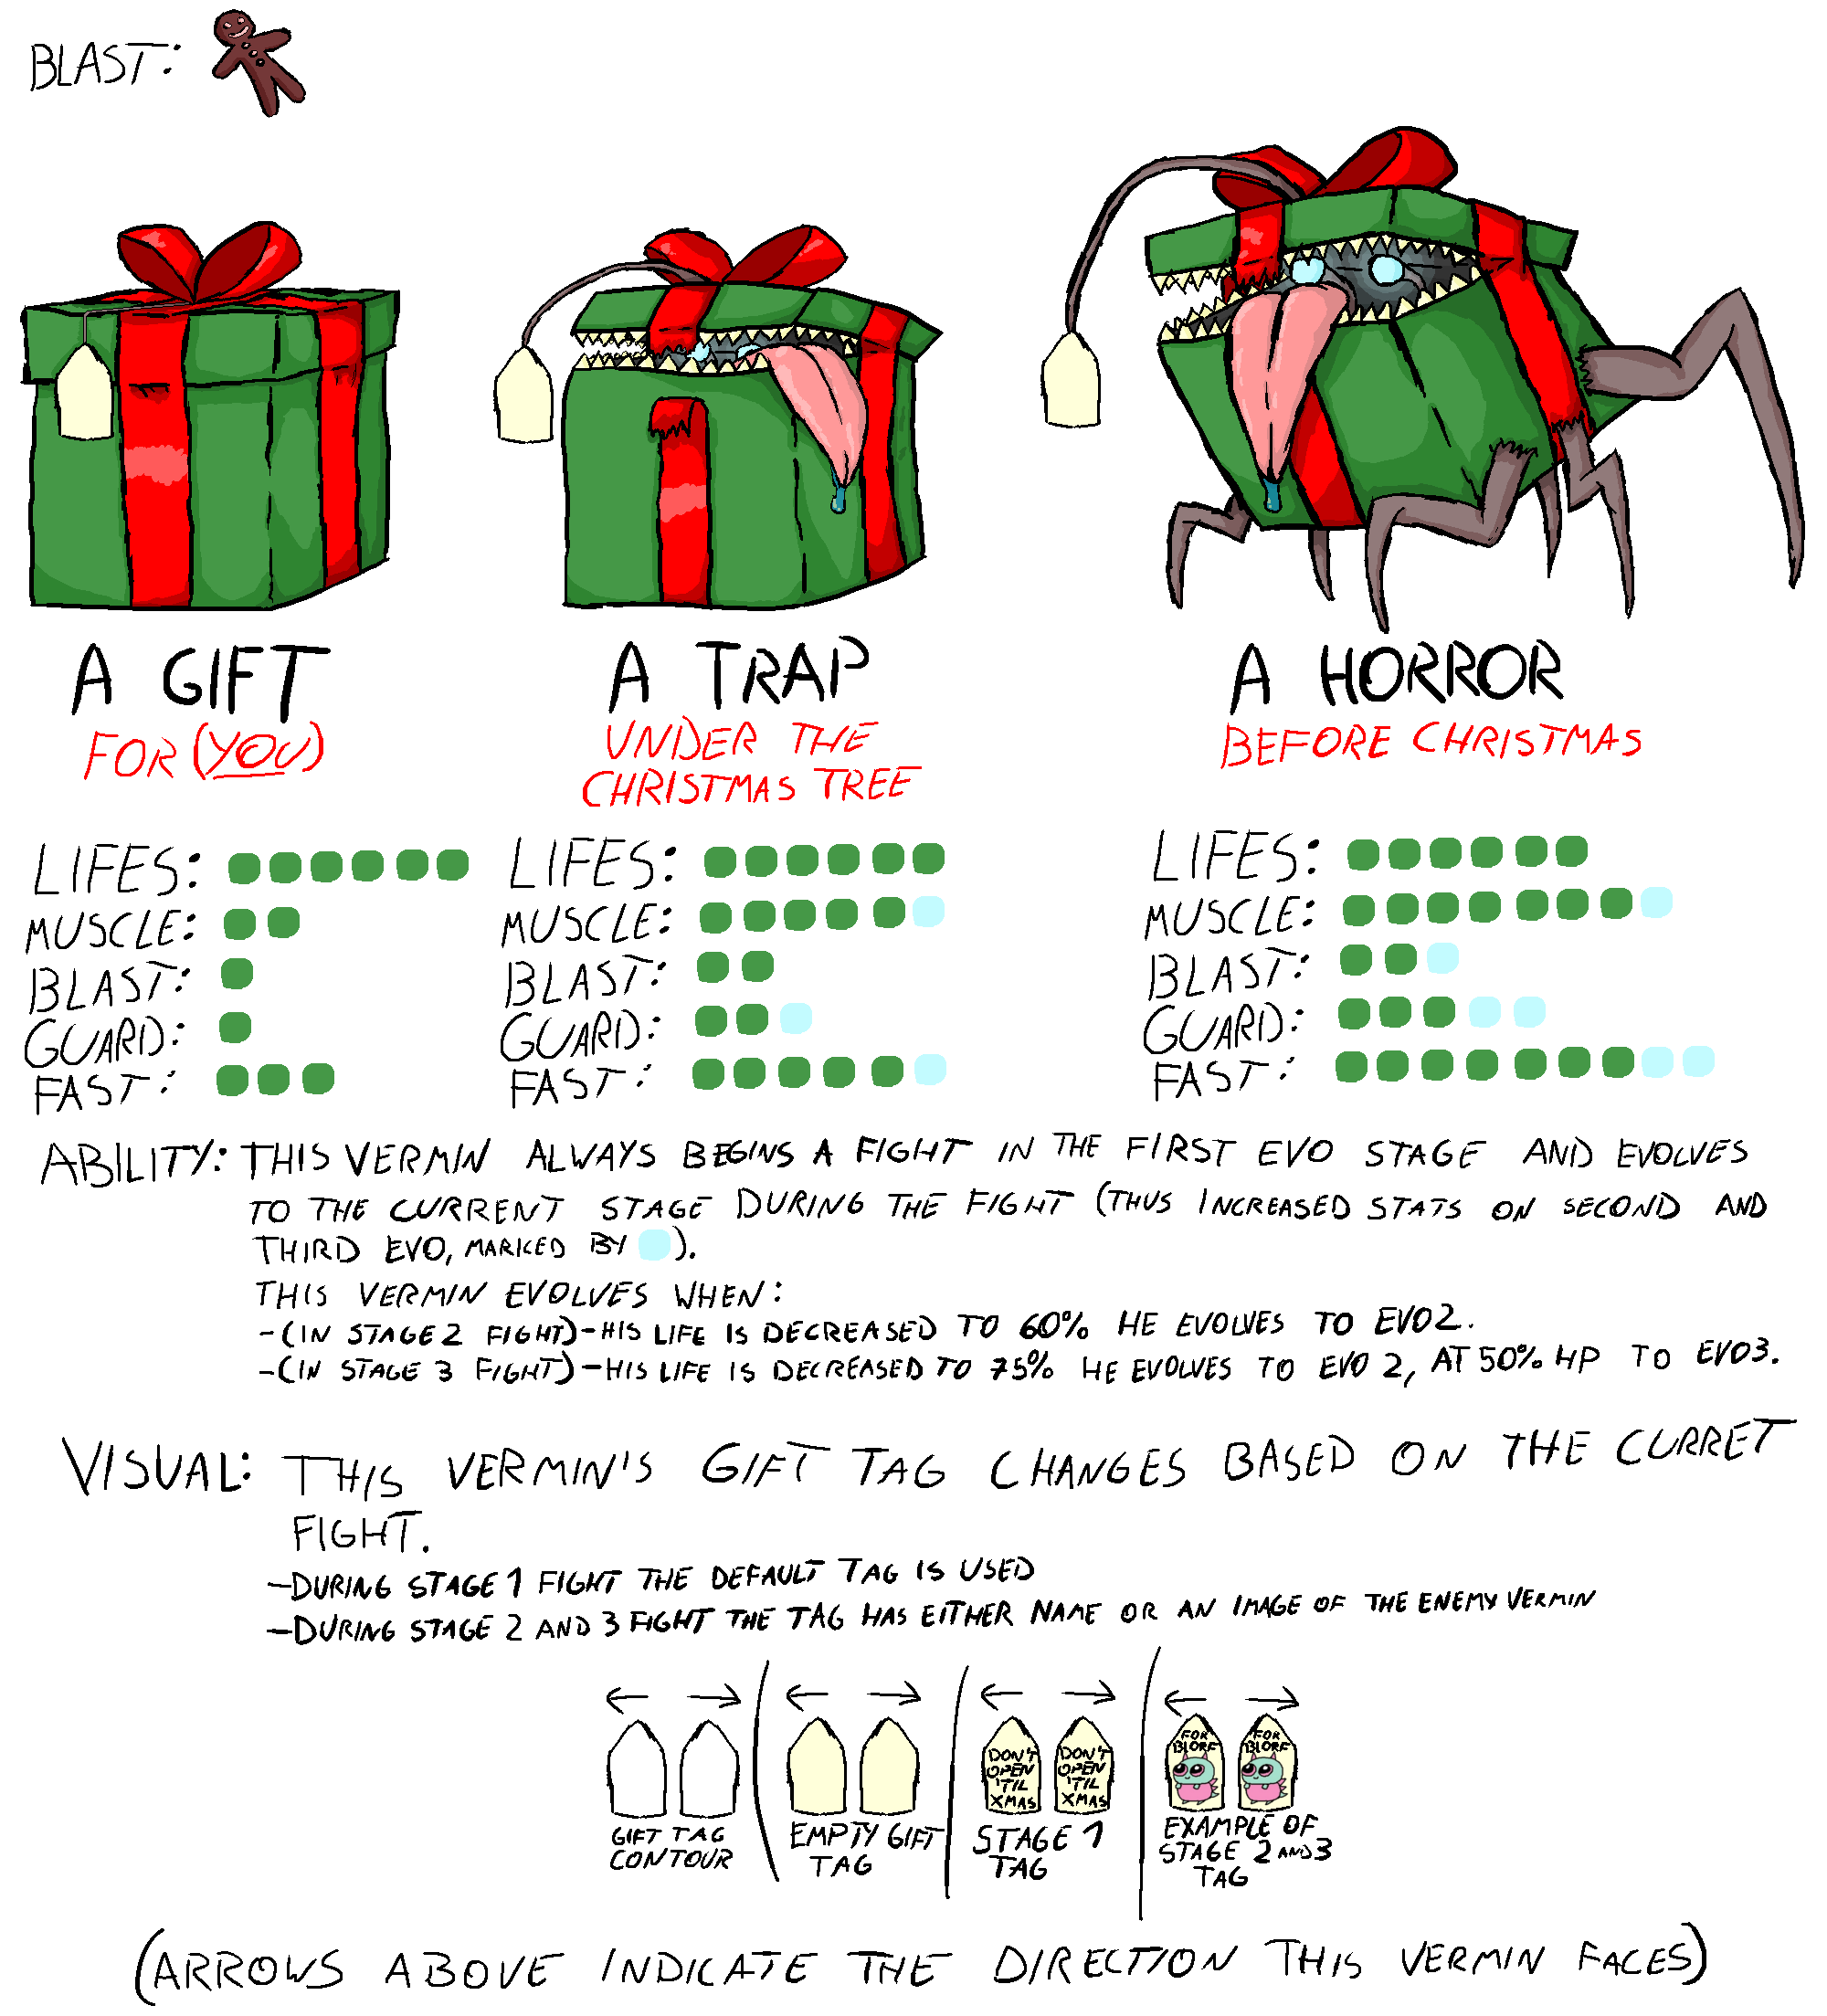 BLAST:
A GIFT
FOR (YOU)
A TRAP
UNDER THE
CHRISTMAS TREE
A HORROR
BEFORE CHRISTMAS
LIFES:
MUSCLE:
BLAST:
GUARD:
FAST:
LIFES:
MUSCLE:
BLAST:
GUARD:
FAST:
LIFES:
MUSCLE:
BLAST:
GUARD:
FAST:
ABILITY: THIS VERMIN ALWAYS BEGINS A FIGHT IN THE FIRST EVO STAGE AND EVOLVES
TO THE CURRENT STAGE DURING THE FIGHT (THUS INCREASED STATS ON SECOND AND
THIRD EVO, MARKED BY ).
THIS VERMIN EVOLVES WHEN:
-(IN STAGE 2 FIGHT)-HIS LIFE IS DECREASED TO 60% HE EVOLVES TO EVO2.
-(IN STAGE 3 FIGHT)-HIS LIFE IS DECREASED TO 75% HE EVOLVES TO EVO 2, AT 50% HP TO EVO3.
VISUAL: THIS VERMIN'S GIFT TAG CHANGES BASED ON THE CURRET
FIGHT.
-DURING STAGE 1 FIGHT THE DEFAULT TAG IS USED
-DURING STAGE 2 AND 3 FIGHT THE TAG HAS EITHER NAME OR AN IMAGE OF THE ENEMY VERMIN
GIFT TAG
CONTOUR
EMPTY GIFT
TAG
DON'T
OPEN
'TIL
XMAS
DON'T
OPEN
'TIL
XMAS
STAGE 1
TAG
FOR
BLORF
FOR
BLORF
EXAMPLE OF
STAGE 2 AND 3
TAG
(ARROWS ABOVE INDICATE THE DIRECTION THIS VERMIN FACES)